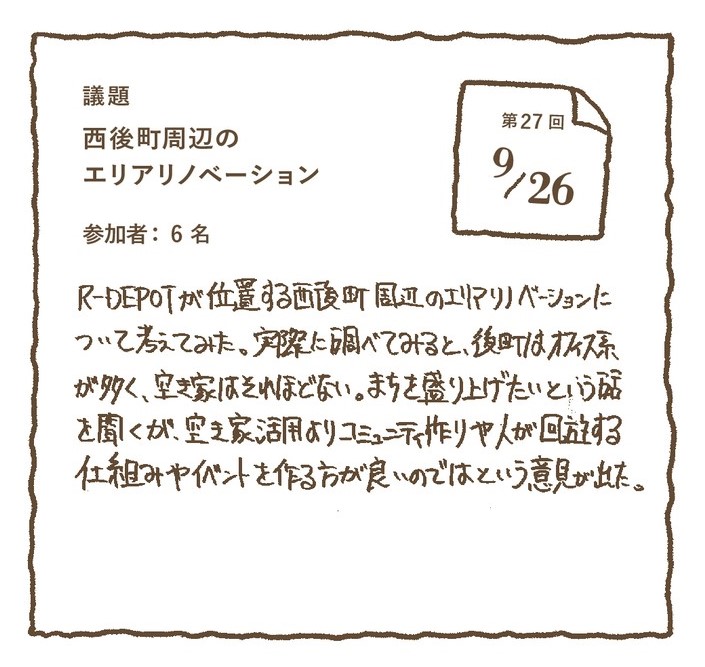 議題
西後町周辺の
エリアリノベーション
参加者：6 名
第27回
9/26
R-DEPOTが位置する西後町周辺のエリアリノベーションに
ついて考えてみた。実際に調べてみると、後町はオフィス系
が多く、空き家はそれほどない。まちを盛り上げたいという話
を聞くが、空き家活用よりコミュニティ作りや人が回遊する
仕組みやイベントを作る方が良いのではという意見が出た。